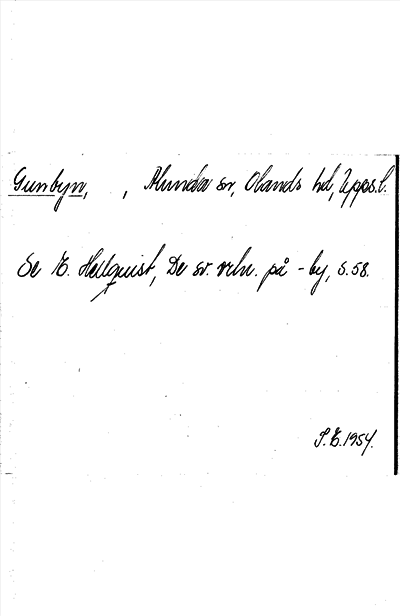 Gunbyn, , Alunda sn, Olands hd, Upps.l.
Se E. Hellquist, De sv. ortn. på -by, s. 58.
S.E. 1954.